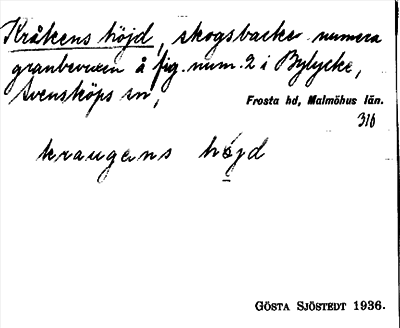 Kråkens höjd, skogsbacke numera
granbevuxen å fig. num. 2 i Bylycke,
Svensköps sn,
Frosta hd, Malmöhus län.
316
kraugens höjd
GÖSTA SJÖSTEDT 1936.